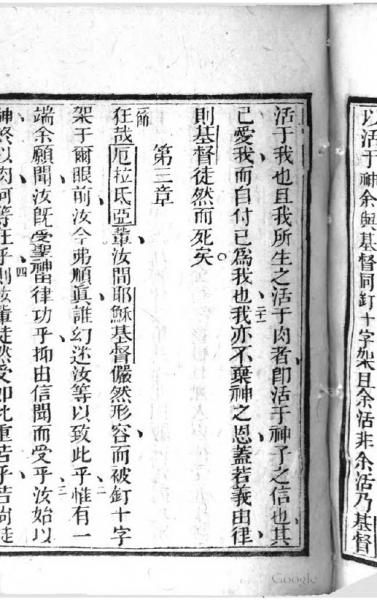 以活于神余與基督同釘十字架且余活非余活乃基督
活于我也且我所生之活于肉者卽活于神子之信也其
己愛我而自付己爲我也二十一我亦不棄神之恩蓋若義由律
則基督徒然而死矣。
第三章
一節狂哉厄拉氐亞輩汝間耶穌基督儼然形容而被釘十字
架于爾眼前汝今弗順眞誰幻迷汝等以致此乎二惟有一
端余願聞汝旣受聖神由律功乎抑由信聞而受乎三汝始以
神終以肉何等狂乎四則汝輩徒然受如此重苦乎若尚徒
Google